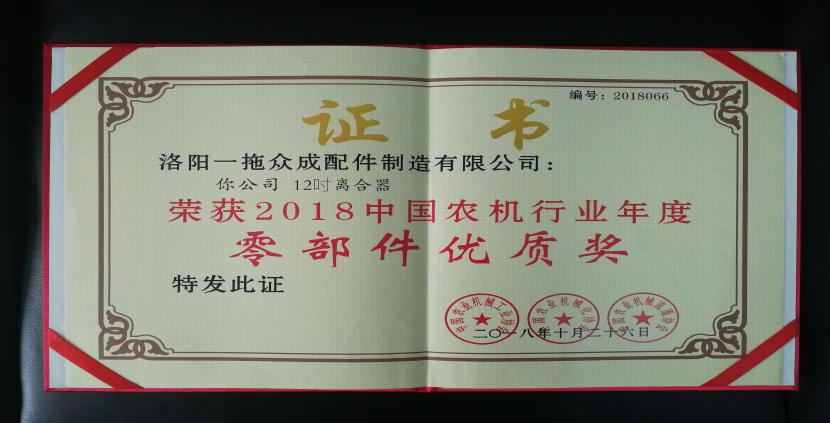 编号：2018066
证书
洛阳一拖众成配件制造有限公司：
你公司 12吋离合器
荣获2018中国农机行业年度
零部件优质奖
特发此证
中国农业机械工业协会
中国农业机械化协会
中国农业机械流通协会
二〇一八年十月二十六日